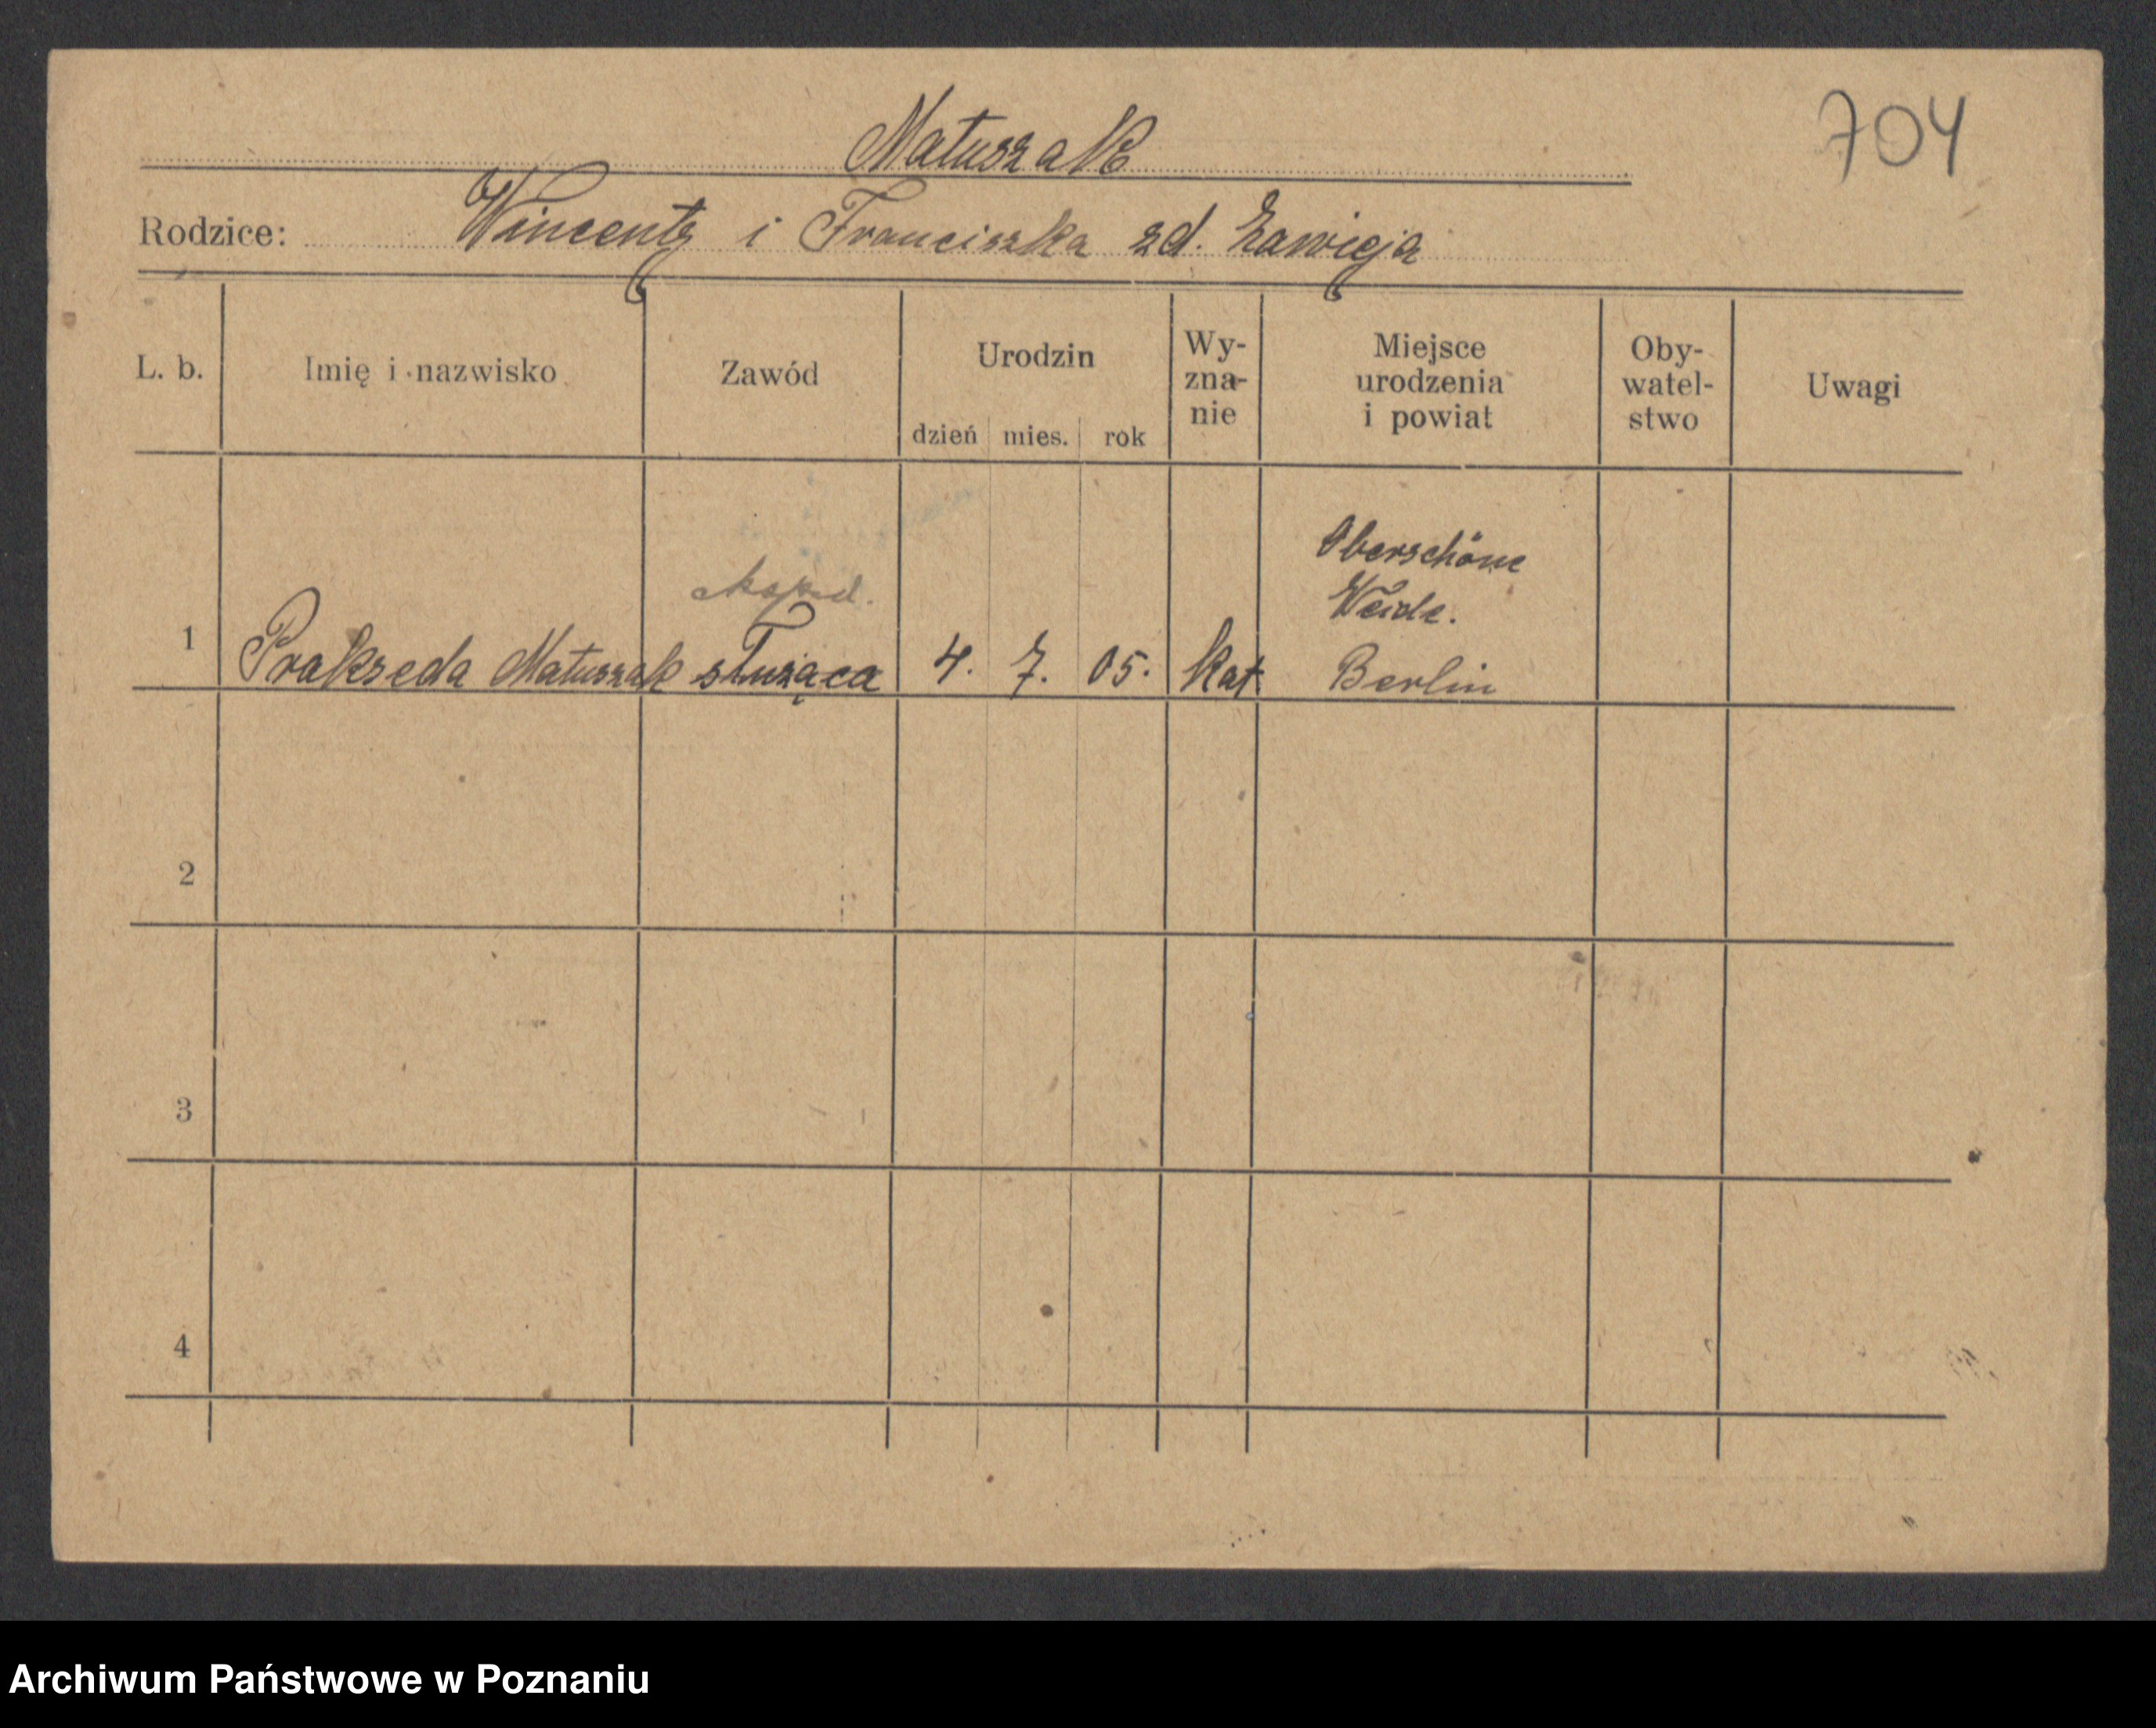 Matuszak
704
Rodzice: Wincenty i Franciszka zd. Zawieja
L. b.
Imię i nazwisko
Zawód
Urodzin
dzień mies. rok
Wy-
zna-
nie
Miejsce
urodzenia
i powiat
Oby-
watel-
stwo
Uwagi
Oberschöne
Weide.
1 Prakseda Matuszak służąca 4. 7. 05. kat Berlin
2
3
4
Archiwum Państwowe w Poznaniu